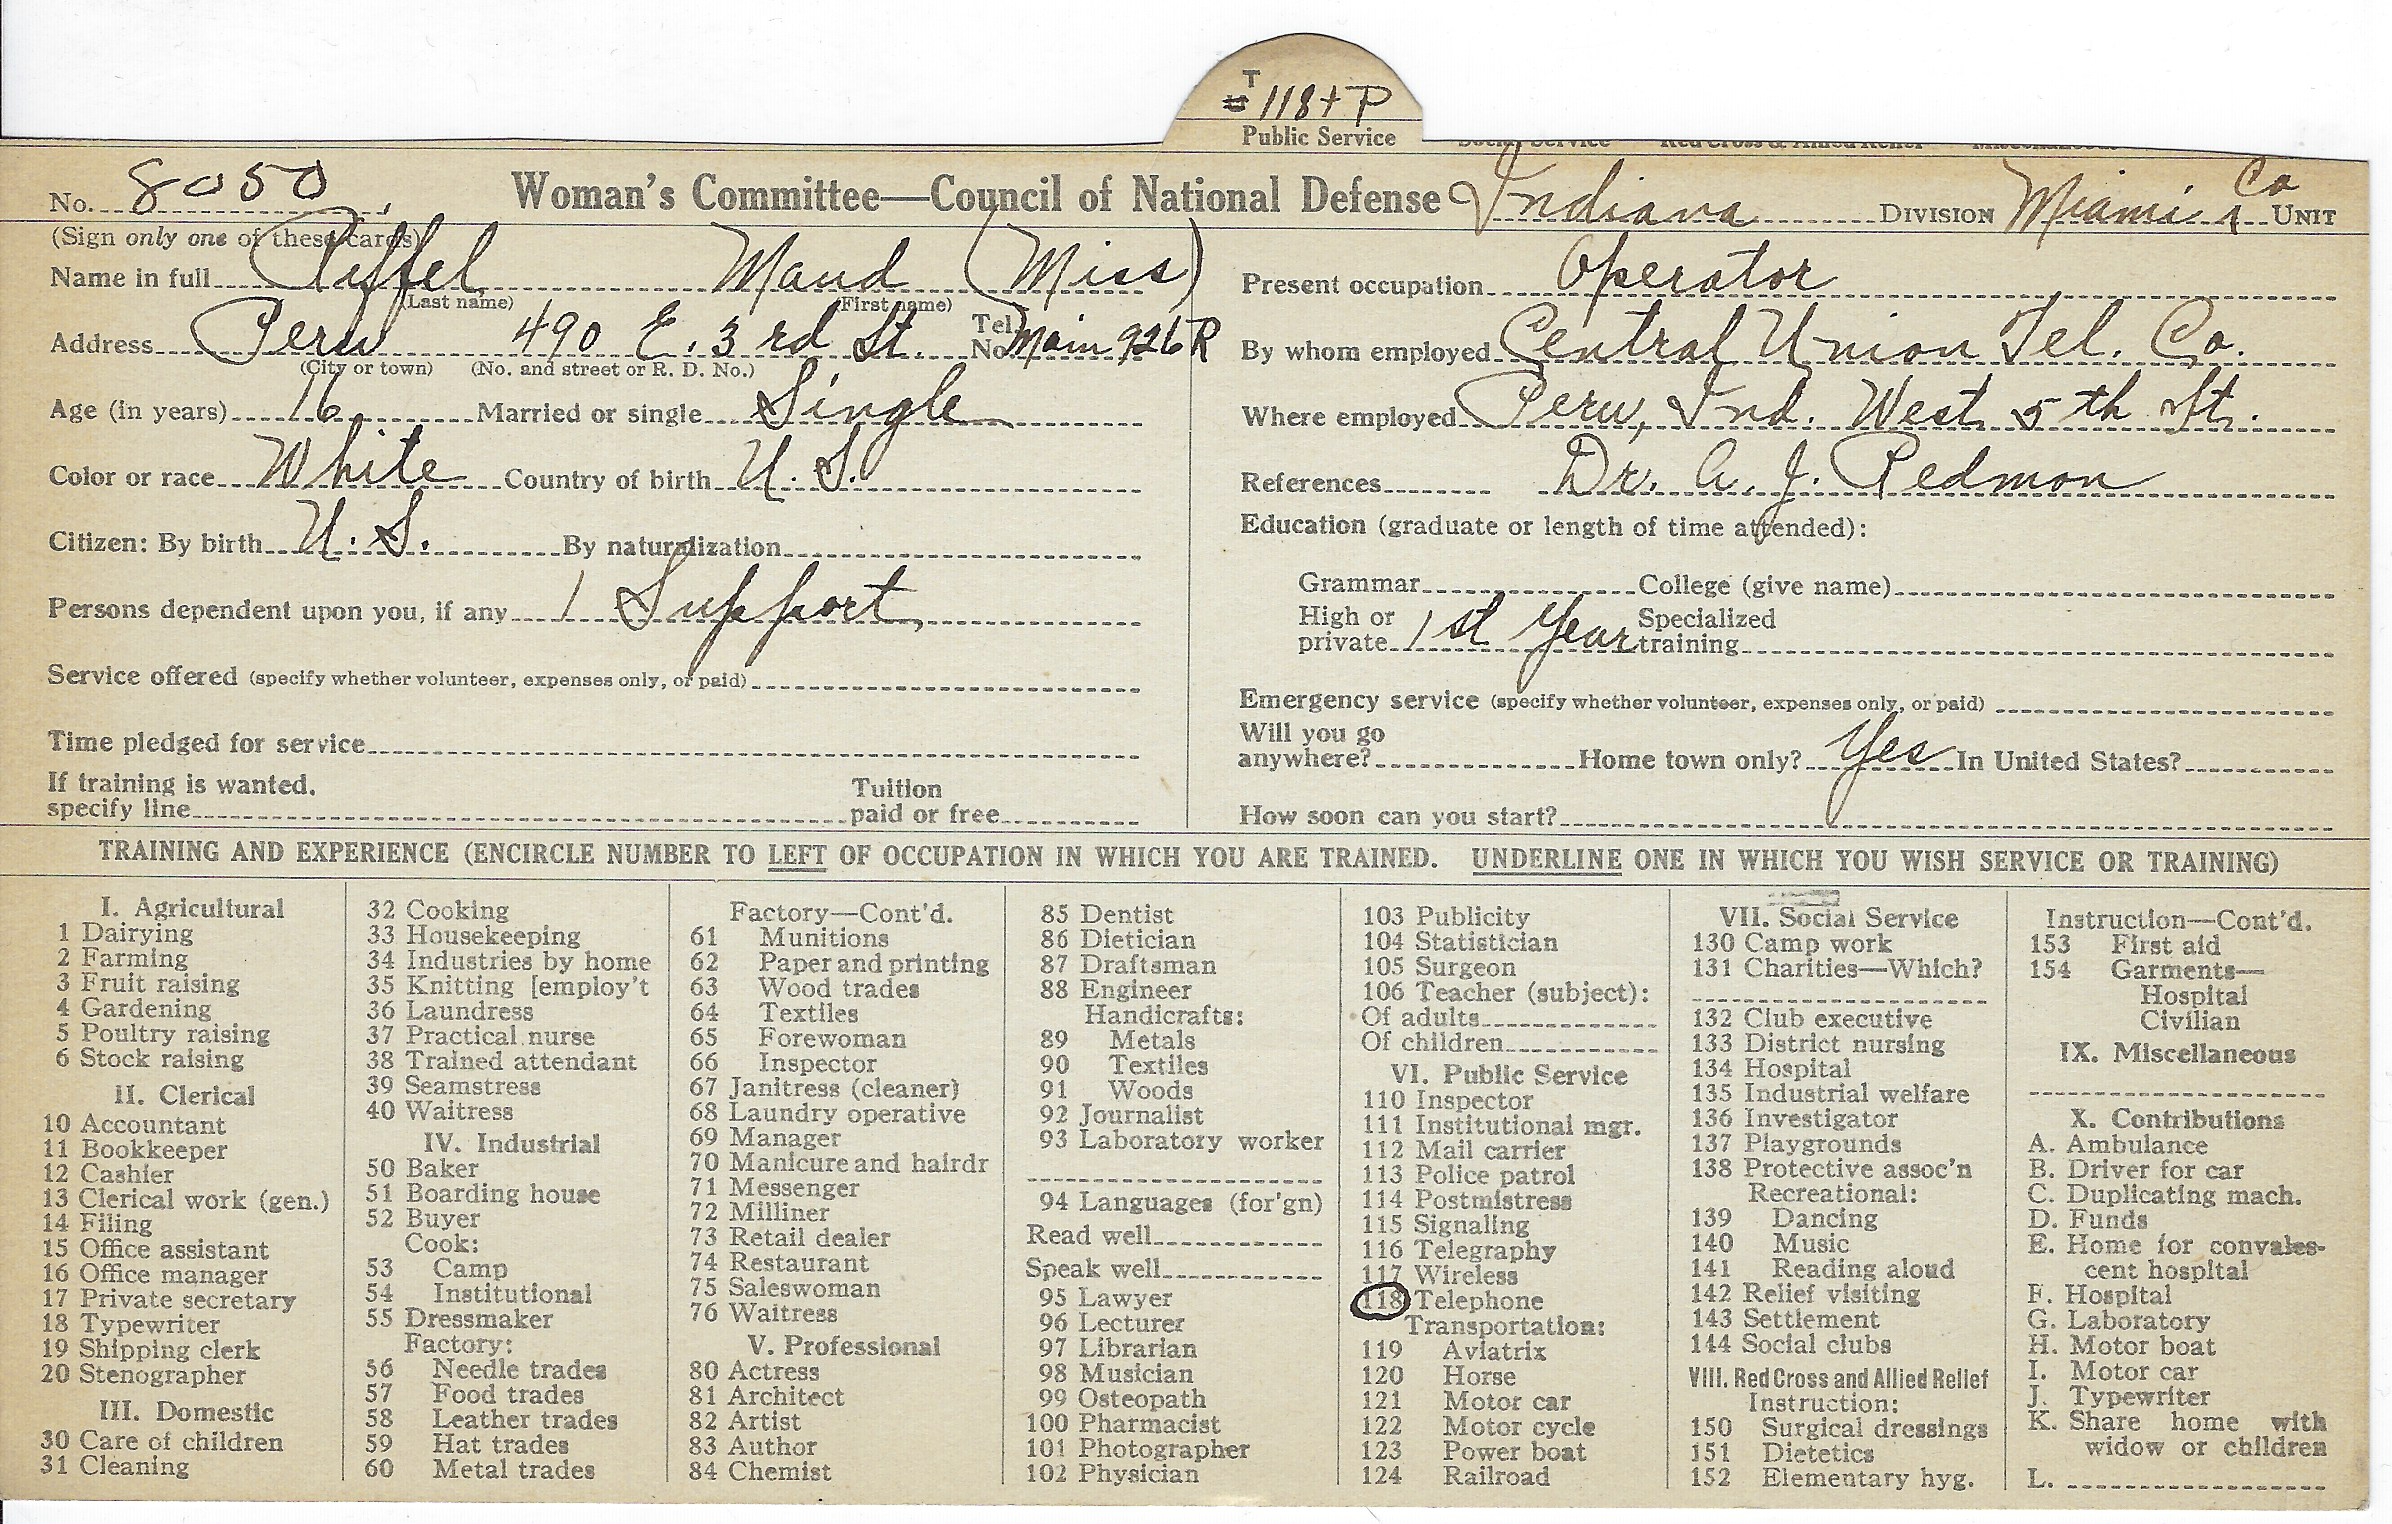 T
# 118 + P
Public Service
No. 8050
Woman's Committee—Council of National Defense Indiana DIVISION Miami Co UNIT
(Sign only one of these cards)
Name in full Piffel Maud (Miss)
(Last name) (First name)
Address Peru 490 E. 3rd St. Tel. No. Main 926 R
(City or town) (No. and street or R. D. No.)
Age (in years) 16 Married or single Single
Color or race White Country of birth U. S.
Citizen: By birth U. S. By naturalization
Persons dependent upon you, if any 1 Support
Service offered (specify whether volunteer, expenses only, or paid)
Time pledged for service
If training is wanted.
specify line
Tuition
paid or free
Present occupation Operator
By whom employed Central Union Tel. Co.
Where employed Peru, Ind. West 5th St.
References Dr. A. J. Redmon
Education (graduate or length of time attended):
Grammar College (give name)
High or
private 1st Year
Specialized
training
Emergency service (specify whether volunteer, expenses only, or paid)
Will you go
anywhere? Home town only? Yes In United States?
How soon can you start?
TRAINING AND EXPERIENCE (ENCIRCLE NUMBER TO LEFT OF OCCUPATION IN WHICH YOU ARE TRAINED. UNDERLINE ONE IN WHICH YOU WISH SERVICE OR TRAINING)
I. Agricultural
1 Dairying
2 Farming
3 Fruit raising
4 Gardening
5 Poultry raising
6 Stock raising
II. Clerical
10 Accountant
11 Bookkeeper
12 Cashier
13 Clerical work (gen.)
14 Filing
15 Office assistant
16 Office manager
17 Private secretary
18 Typewriter
19 Shipping clerk
20 Stenographer
III. Domestic
30 Care of children
31 Cleaning
32 Cooking
33 Housekeeping
34 Industries by home
35 Knitting [employ't
36 Laundress
37 Practical nurse
38 Trained attendant
39 Seamstress
40 Waitress
IV. Industrial
50 Baker
51 Boarding house
52 Buyer
Cook:
53 Camp
54 Institutional
55 Dressmaker
Factory:
56 Needle trades
57 Food trades
58 Leather trades
59 Hat trades
60 Metal trades
Factory—Cont'd.
61 Munitions
62 Paper and printing
63 Wood trades
64 Textiles
65 Forewoman
66 Inspector
67 Janitress (cleaner)
68 Laundry operative
69 Manager
70 Manicure and hairdr
71 Messenger
72 Milliner
73 Retail dealer
74 Restaurant
75 Saleswoman
76 Waitress
V. Professional
80 Actress
81 Architect
82 Artist
83 Author
84 Chemist
85 Dentist
86 Dietician
87 Draftsman
88 Engineer
Handicrafts:
89 Metals
90 Textiles
91 Woods
92 Journalist
93 Laboratory worker
94 Languages (for'gn)
Read well
Speak well
95 Lawyer
96 Lecturer
97 Librarian
98 Musician
99 Osteopath
100 Pharmacist
101 Photographer
102 Physician
103 Publicity
104 Statistician
105 Surgeon
106 Teacher (subject):
Of adults
Of children
VI. Public Service
110 Inspector
111 Institutional mgr.
112 Mail carrier
113 Police patrol
114 Postmistress
115 Signaling
116 Telegraphy
117 Wireless
118 Telephone
Transportation:
119 Aviatrix
120 Horse
121 Motor car
122 Motor cycle
123 Power boat
124 Railroad
VII. Social Service
130 Camp work
131 Charities—Which?
132 Club executive
133 District nursing
134 Hospital
135 Industrial welfare
136 Investigator
137 Playgrounds
138 Protective assoc'n
Recreational:
139 Dancing
140 Music
141 Reading aloud
142 Relief visiting
143 Settlement
144 Social clubs
VIII. Red Cross and Allied Relief
Instruction:
150 Surgical dressings
151 Dietetics
152 Elementary hyg.
Instruction—Cont'd.
153 First aid
154 Garments—
Hospital
Civilian
IX. Miscellaneous
X. Contributions
A. Ambulance
B. Driver for car
C. Duplicating mach.
D. Funds
E. Home for convales-
cent hospital
F. Hospital
G. Laboratory
H. Motor boat
I. Motor car
J. Typewriter
K. Share home with
widow or children
L.